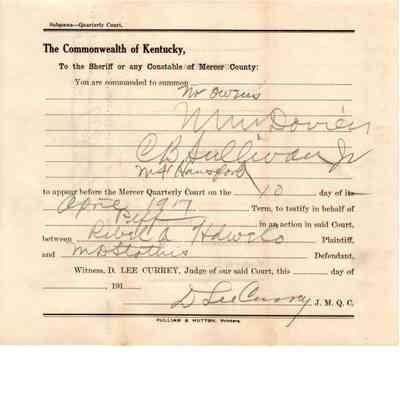 Subpoena—Quarterly Court.
The Commonwealth of Kentucky,
To the Sheriff or any Constable of Mercer County:
You are commanded to summon
Owens
C B Sullivan Jr
Hansford
to appear before the Mercer Quarterly Court on the 10 day of its
April 1917 Term, to testify in behalf of
Plff in an action in said Court,
between Plaintiff,
and Defendant,
Witness, D. LEE CURREY, Judge of our said Court, this day of
, 191
D Lee Currey J. M. Q. C.
PULLIAM & HUTTON, Printers